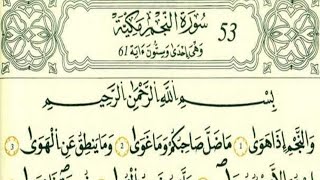 سورة النجم مكية
53
وهي احدى وستون ءاية 61
بسم الله الرحمن الرحيم
والنجم إذا هوى 1 ما ضل صاحبكم وما غوى 2 وما ينطق عن الهوى 3